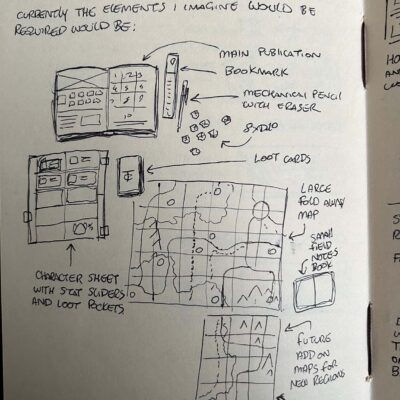 CURRENTLY THE ELEMENTS I IMAGINE WOULD BE
REQUIRED WOULD BE;
MAIN PUBLICATION
BOOKMARK
MECHANICAL PENCIL
WITH ERASER
8xD10
LOOT CARDS
LARGE
FOLD AWAY
MAP
SMALL
FIELD
NOTES
BOOK
CHARACTER SHEET
WITH STAT SLIDERS
AND LOOT POCKETS
FUTURE
ADD ON
MAPS FOR
NEW REGIONS
1 2 3
4 5 6
7 8 9
10